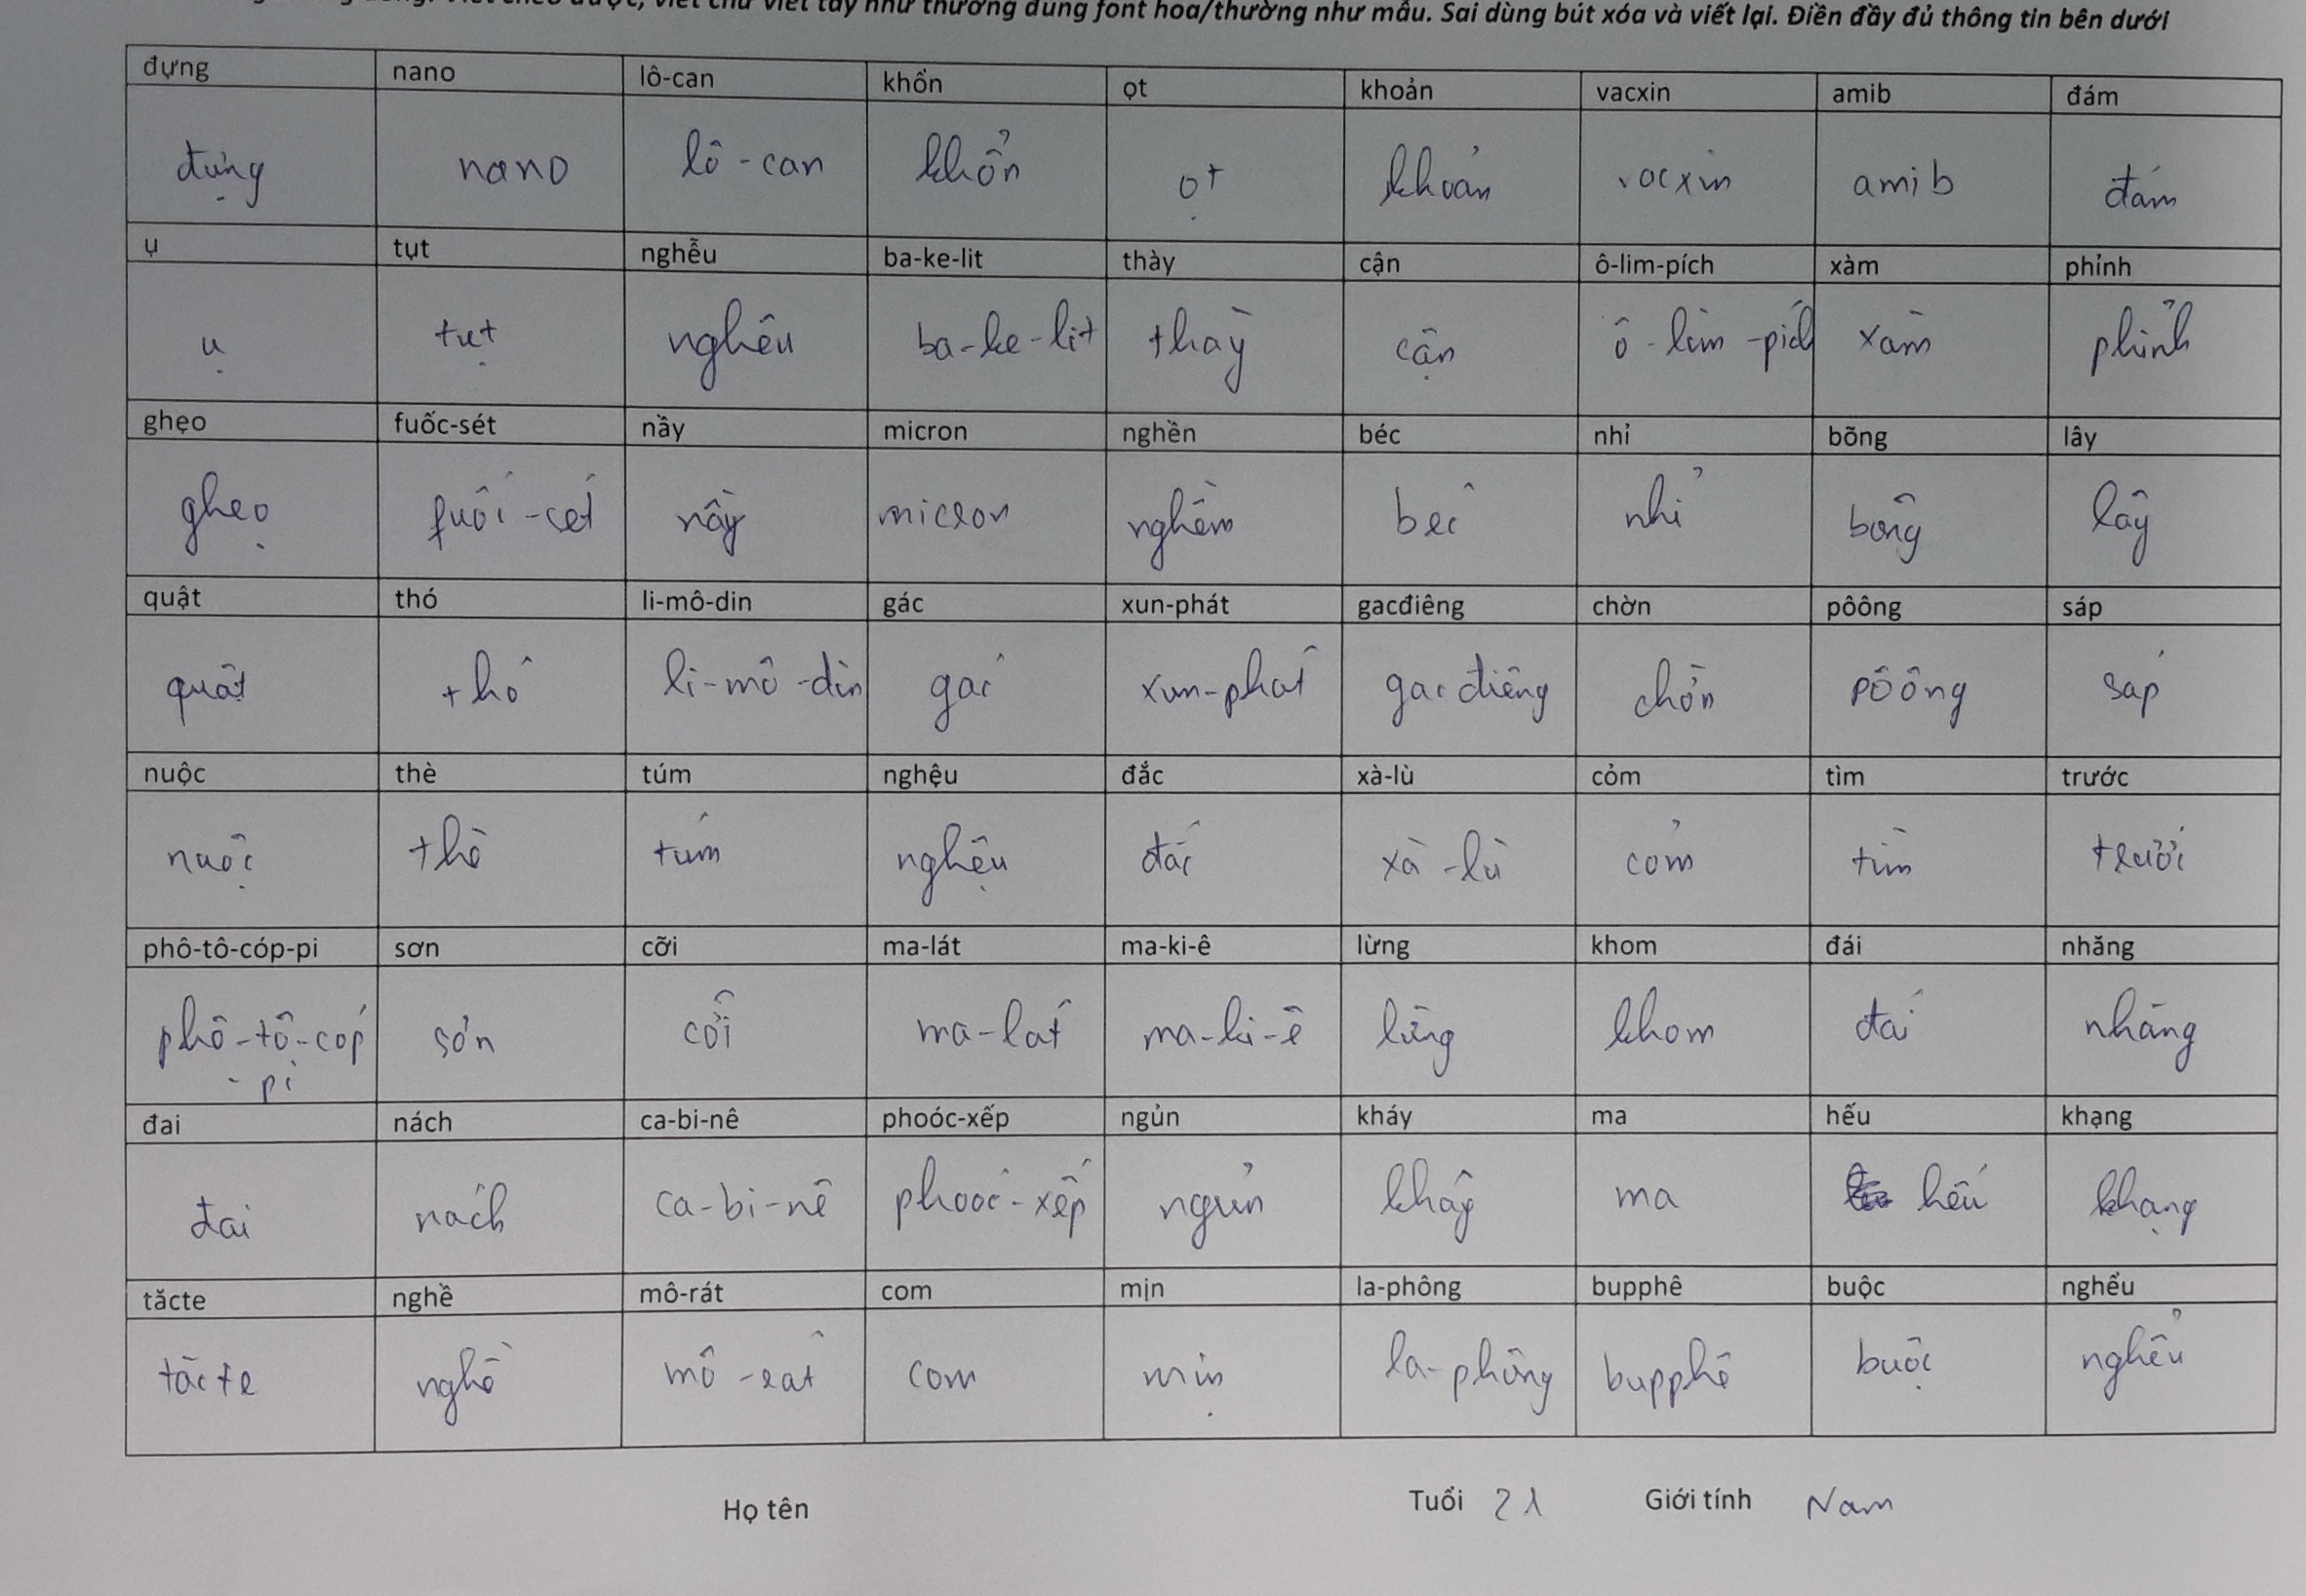 viết chữ viết tay như thường dùng font hoa/thường như mẫu. Sai dùng bút xóa và viết lại. Điền đầy đủ thông tin bên dưới
đựng nano lô-can khổn ọt khoản vacxin amib đám
đựng nano lô-can khổn ọt khoản vacxin amib đám
ụ tụt nghễu ba-ke-lit thày cận ô-lim-pích xàm phỉnh
ụ tụt nghễu ba-ke-lit thày cận ô-lim-pích xàm phỉnh
ghẹo fuốc-sét nầy micron nghền béc nhỉ bõng lây
ghẹo fuốc-sét nầy micron nghền béc nhỉ bõng lây
quật thó li-mô-din gác xun-phát gacđiêng chờn pôông sáp
quật thó li-mô-din gác xun-phát gacđiêng chờn pôông sáp
nuộc thè túm nghệu đắc xà-lù cỏm tìm trước
nuộc thè túm nghệu đắc xà-lù cỏm tìm trước
phô-tô-cóp-pi sơn cỡi ma-lát ma-ki-ê lừng khom đái nhăng
phô-tô-cóp sơn cỡi ma-lát ma-ki-ê lừng khom đái nhăng
-pi
đai nách ca-bi-nê phoóc-xếp ngủn kháy ma hếu khạng
đai nách ca-bi-nê phoóc-xếp ngủn kháy ma hếu khạng
tăcte nghề mô-rát com mịn la-phông bupphê buộc nghểu
tăcte nghề mô-rát com mịn la-phông bupphê buộc nghểu
Họ tên Tuổi 21 Giới tính Nam